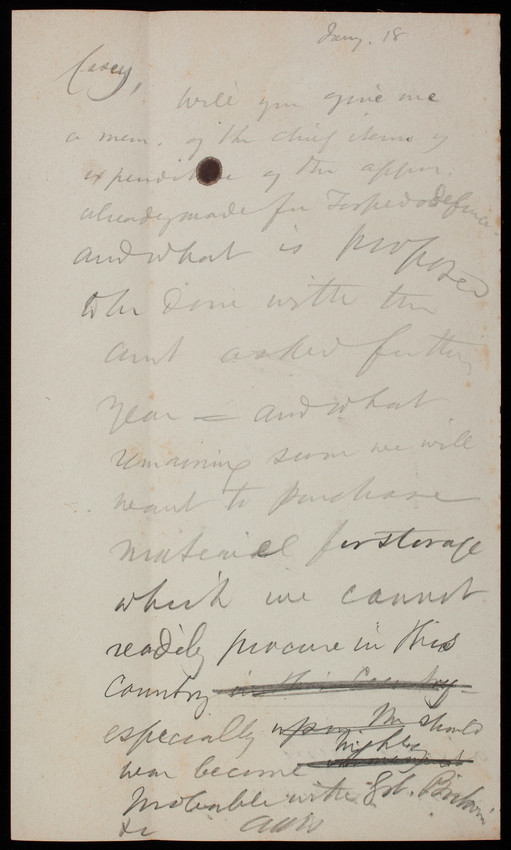 Jany. 18
Casey,
Will you give me
a mem. of the chief items of
expenditure of the appr.
already made for Torpedo defence
and what is proposed
to be done with the
amt asked for this
year = and what
remaining sum we will
want to purchase
material for storage
which we cannot
readily procure in this
country in this country
especially upon the should
war become highly
probable with Gt. Britain
&c